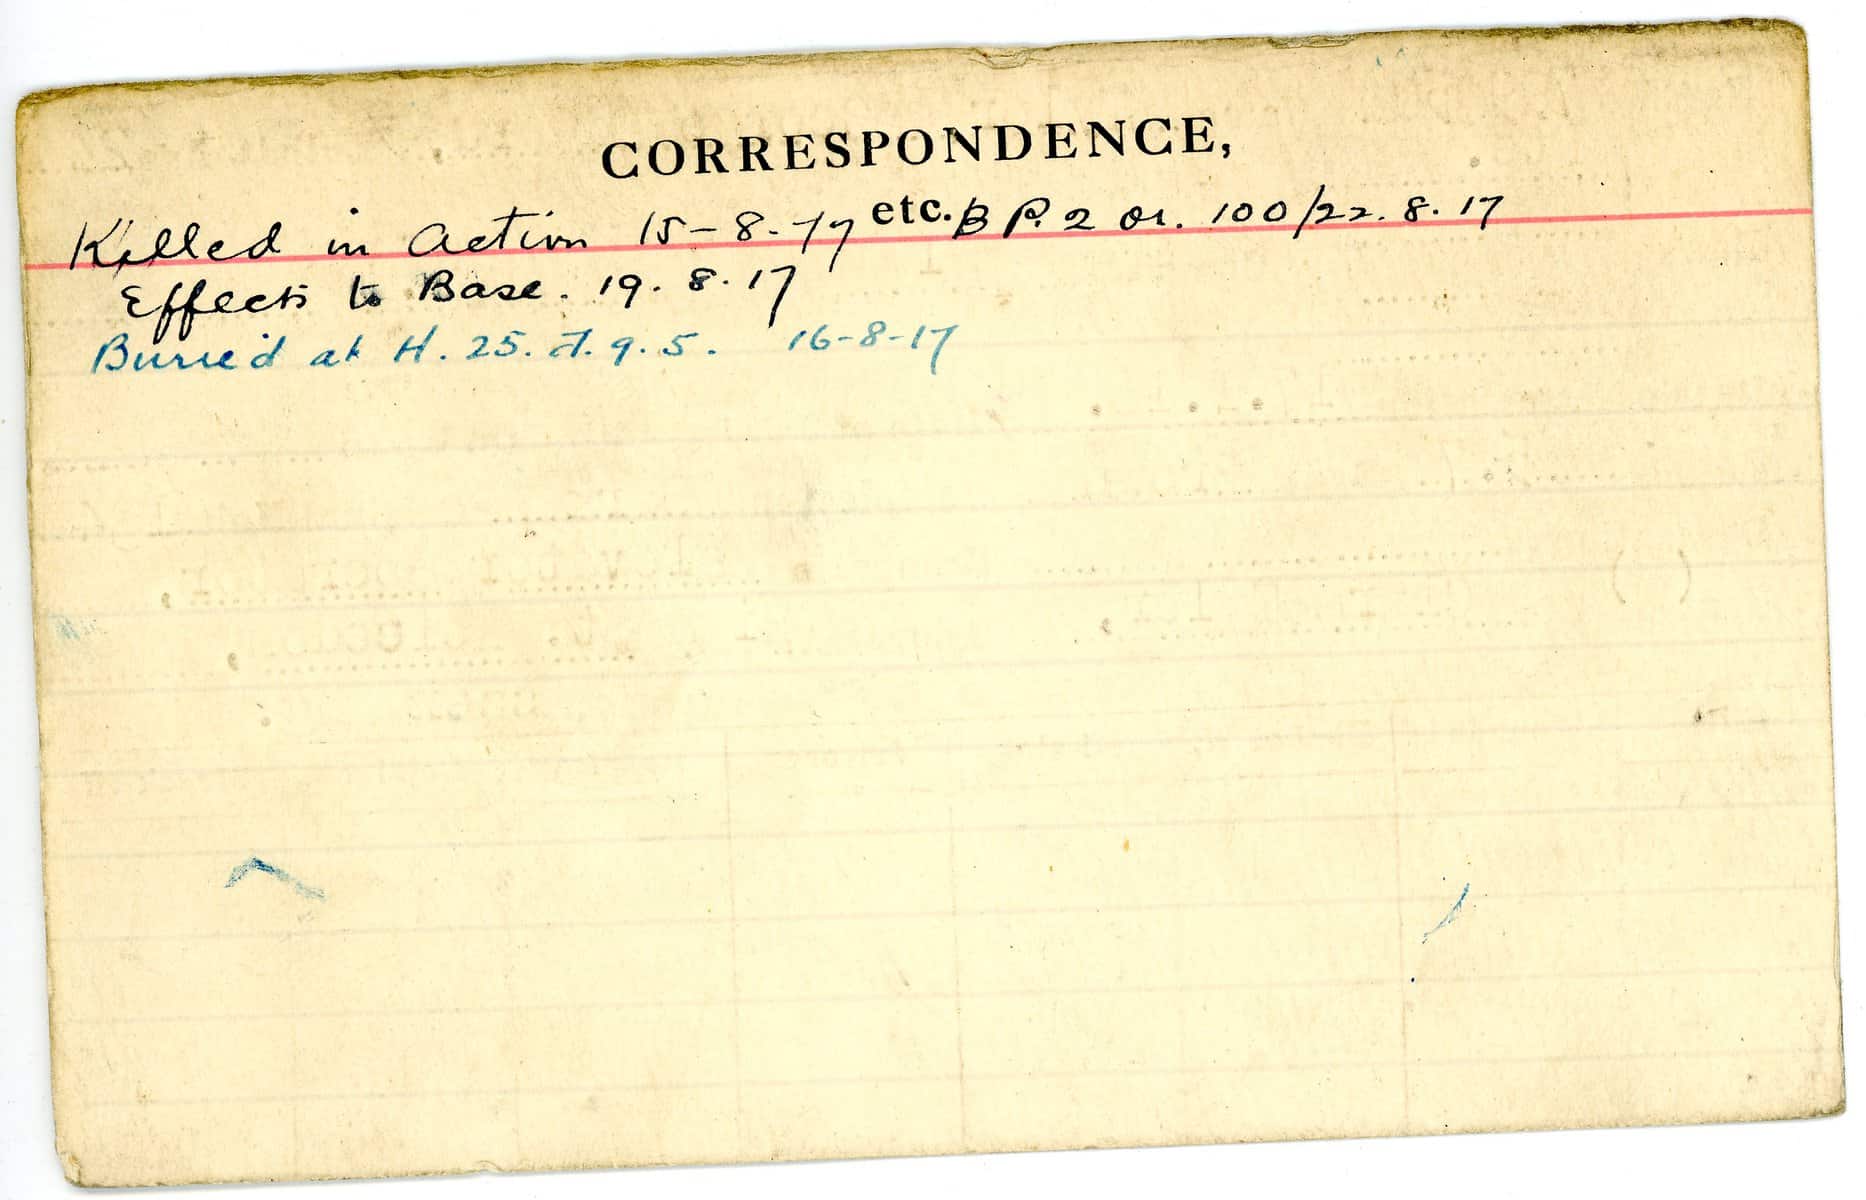 CORRESPONDENCE, etc.
Killed in Action 15-8-17 B P. 2 Or. 100/22.8.17
Effects to Base. 19.8.17
Buried at H. 25. d. 9. 5. 16-8-17